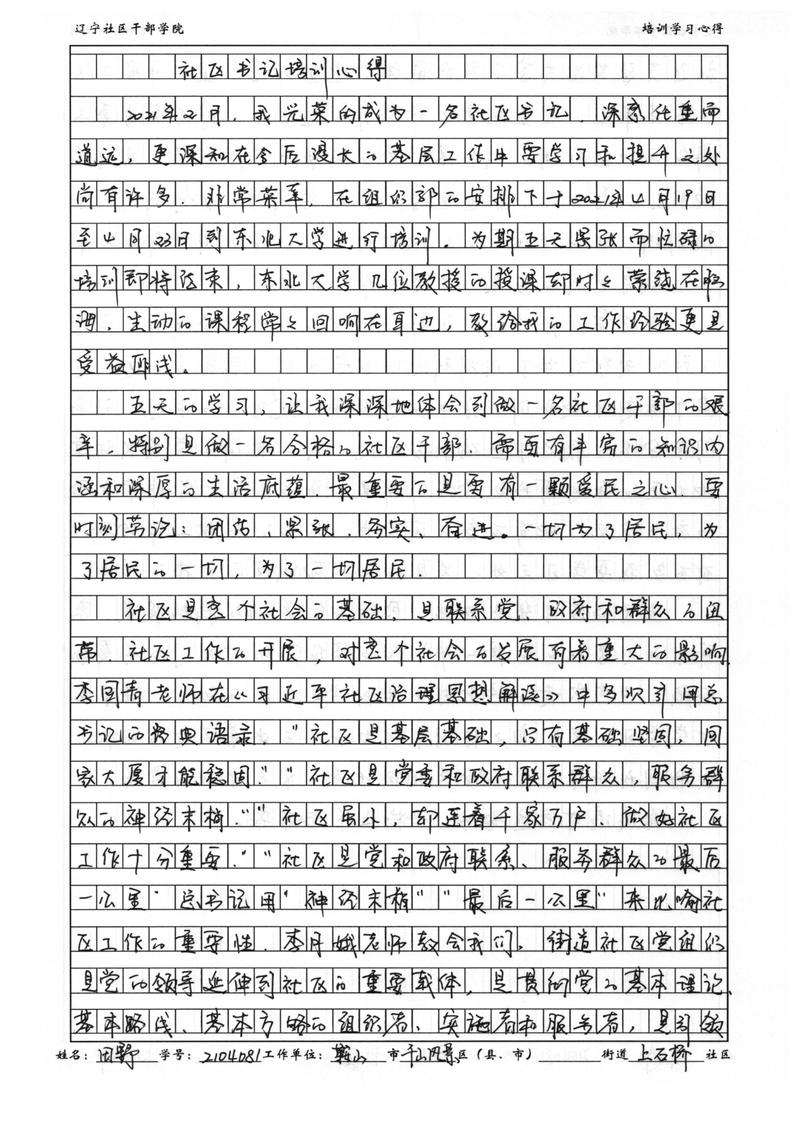 辽宁社区干部学院 培训学习心得
社区书记培训心得
2021年2月,我光荣的成为一名社区书记,深系任重而
道远,更深知在今后漫长的基层工作中要学习和提升之处
尚有许多.非常荣幸,在组织部的安排下于2021年4月19日
至4月23日到东北大学进行培训。为期五天紧张而忙碌的
培训即将结束,东北大学几位教授的授课却时时萦绕在脑
海,生动的课程常常回响在耳边,教给我的工作经验更是
受益匪浅。
五天的学习,让我深深地体会到做一名社区干部的艰
辛,特别是做一名合格的社区干部.需要有丰富的知识内
涵和深厚的生活底蕴.最重要的是要有一颗爱民之心.要
时刻牢记:团结、紧张、务实、奋进。一切为了居民,为
了居民的一切,为了一切居民.
社区是整个社会的基础,是联系党、政府和群众的纽
带.社区工作的开展,对整个社会的发展有着重大的影响.
李国青老师在《习近平社区治理思想解读》中多次引用总
书记的经典语录."社区是基层基础,只有基础坚固,国
家大厦才能稳固.""社区是党委和政府联系群众,服务群
众的神经末梢.""社区虽小,却连着千家万户.做好社区
工作十分重要.""社区是党和政府联系、服务群众的最后
一公里"总书记用"神经末梢""最后一公里"来比喻社
区工作的重要性.李月娥老师教会我们,街道社区党组织
是党的领导延伸到社区的重要载体,是贯彻党的基本理论、
基本路线、基本方略的组织者、实施者和服务者,是引领
姓名:田野 学号:2104081 工作单位:鞍山 市 千山风景区(县、市) 街道 上石桥 社区